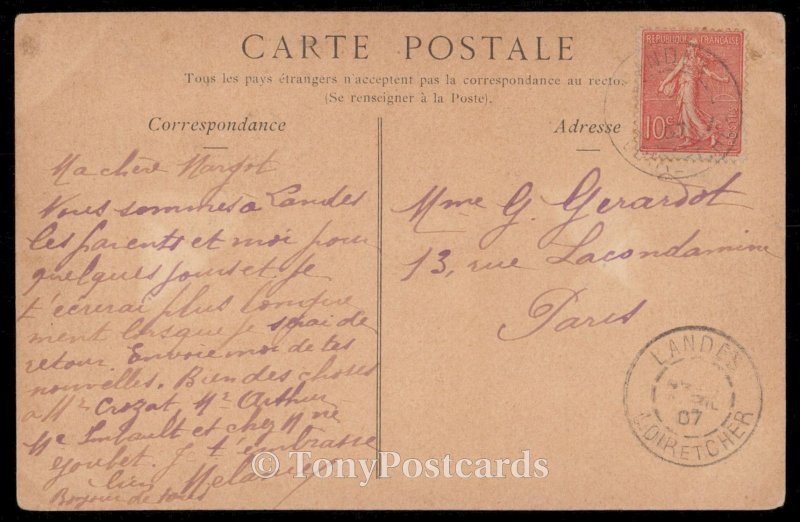 CARTE POSTALE
Tous les pays étrangers n'acceptent pas la correspondance au recto.
(Se renseigner à la Poste).
Correspondance
Ma chère Margot
Vous sommes a Landes
les parents et moi pour
quelques jours et je
t'écrirai plus longue
ment lorsque je serai de
retour. Envoie moi de tes
nouvelles. Bien des choses
a Mr Crozat Mr Arthur
Me Imbault et chez Mme
Goubet. Je t'embrasse
bien
Bonjour de tous
Adresse
Mme G. Gerardot
13, rue Lacondamine
Paris
REPUBLIQUE FRANÇAISE
10c
POSTES
LANDES
07
LOIR ET CHER
© TonyPostcards